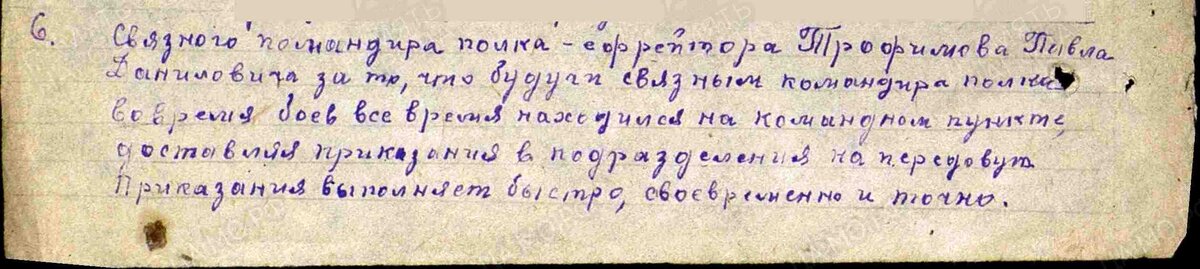 6. Связного командира полка - ефрейтора Трофимова Павла
Даниловича за то, что будучи связным командира полка
во время боев все время находился на командном пункте,
доставляя приказания в подразделения на передовую.
Приказания выполняет быстро, своевременно и точно.